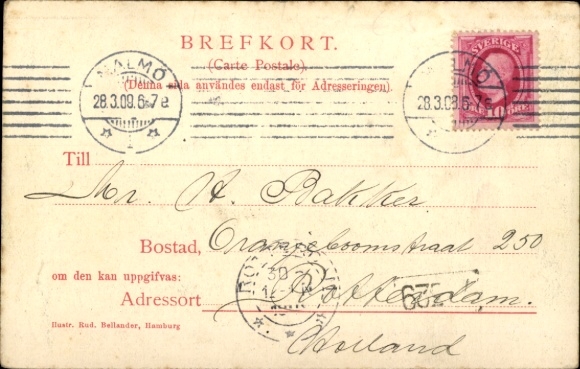 BREFKORT.
(Carte Postale.)
(Denna sida användes endast för Adresseringen)
MALMÖ
28.3.09.6-7e
1
MALMÖ
28.3.09.6-7e
SVERIGE
10
Till
Mr. A. Bakker.
Bostad, Oranjeboomstraat 250
om den kan uppgifvas:
Adressort Rotterdam.
30
Illustr. Rud. Bellander, Hamburg
Holland